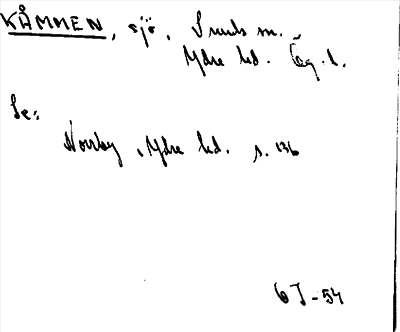 KÅMMEN, sjö, Sunds sn.
Ydre hd. Ög. l.
Se:
Norrby, Ydre hd. s. 136
6 J - 54